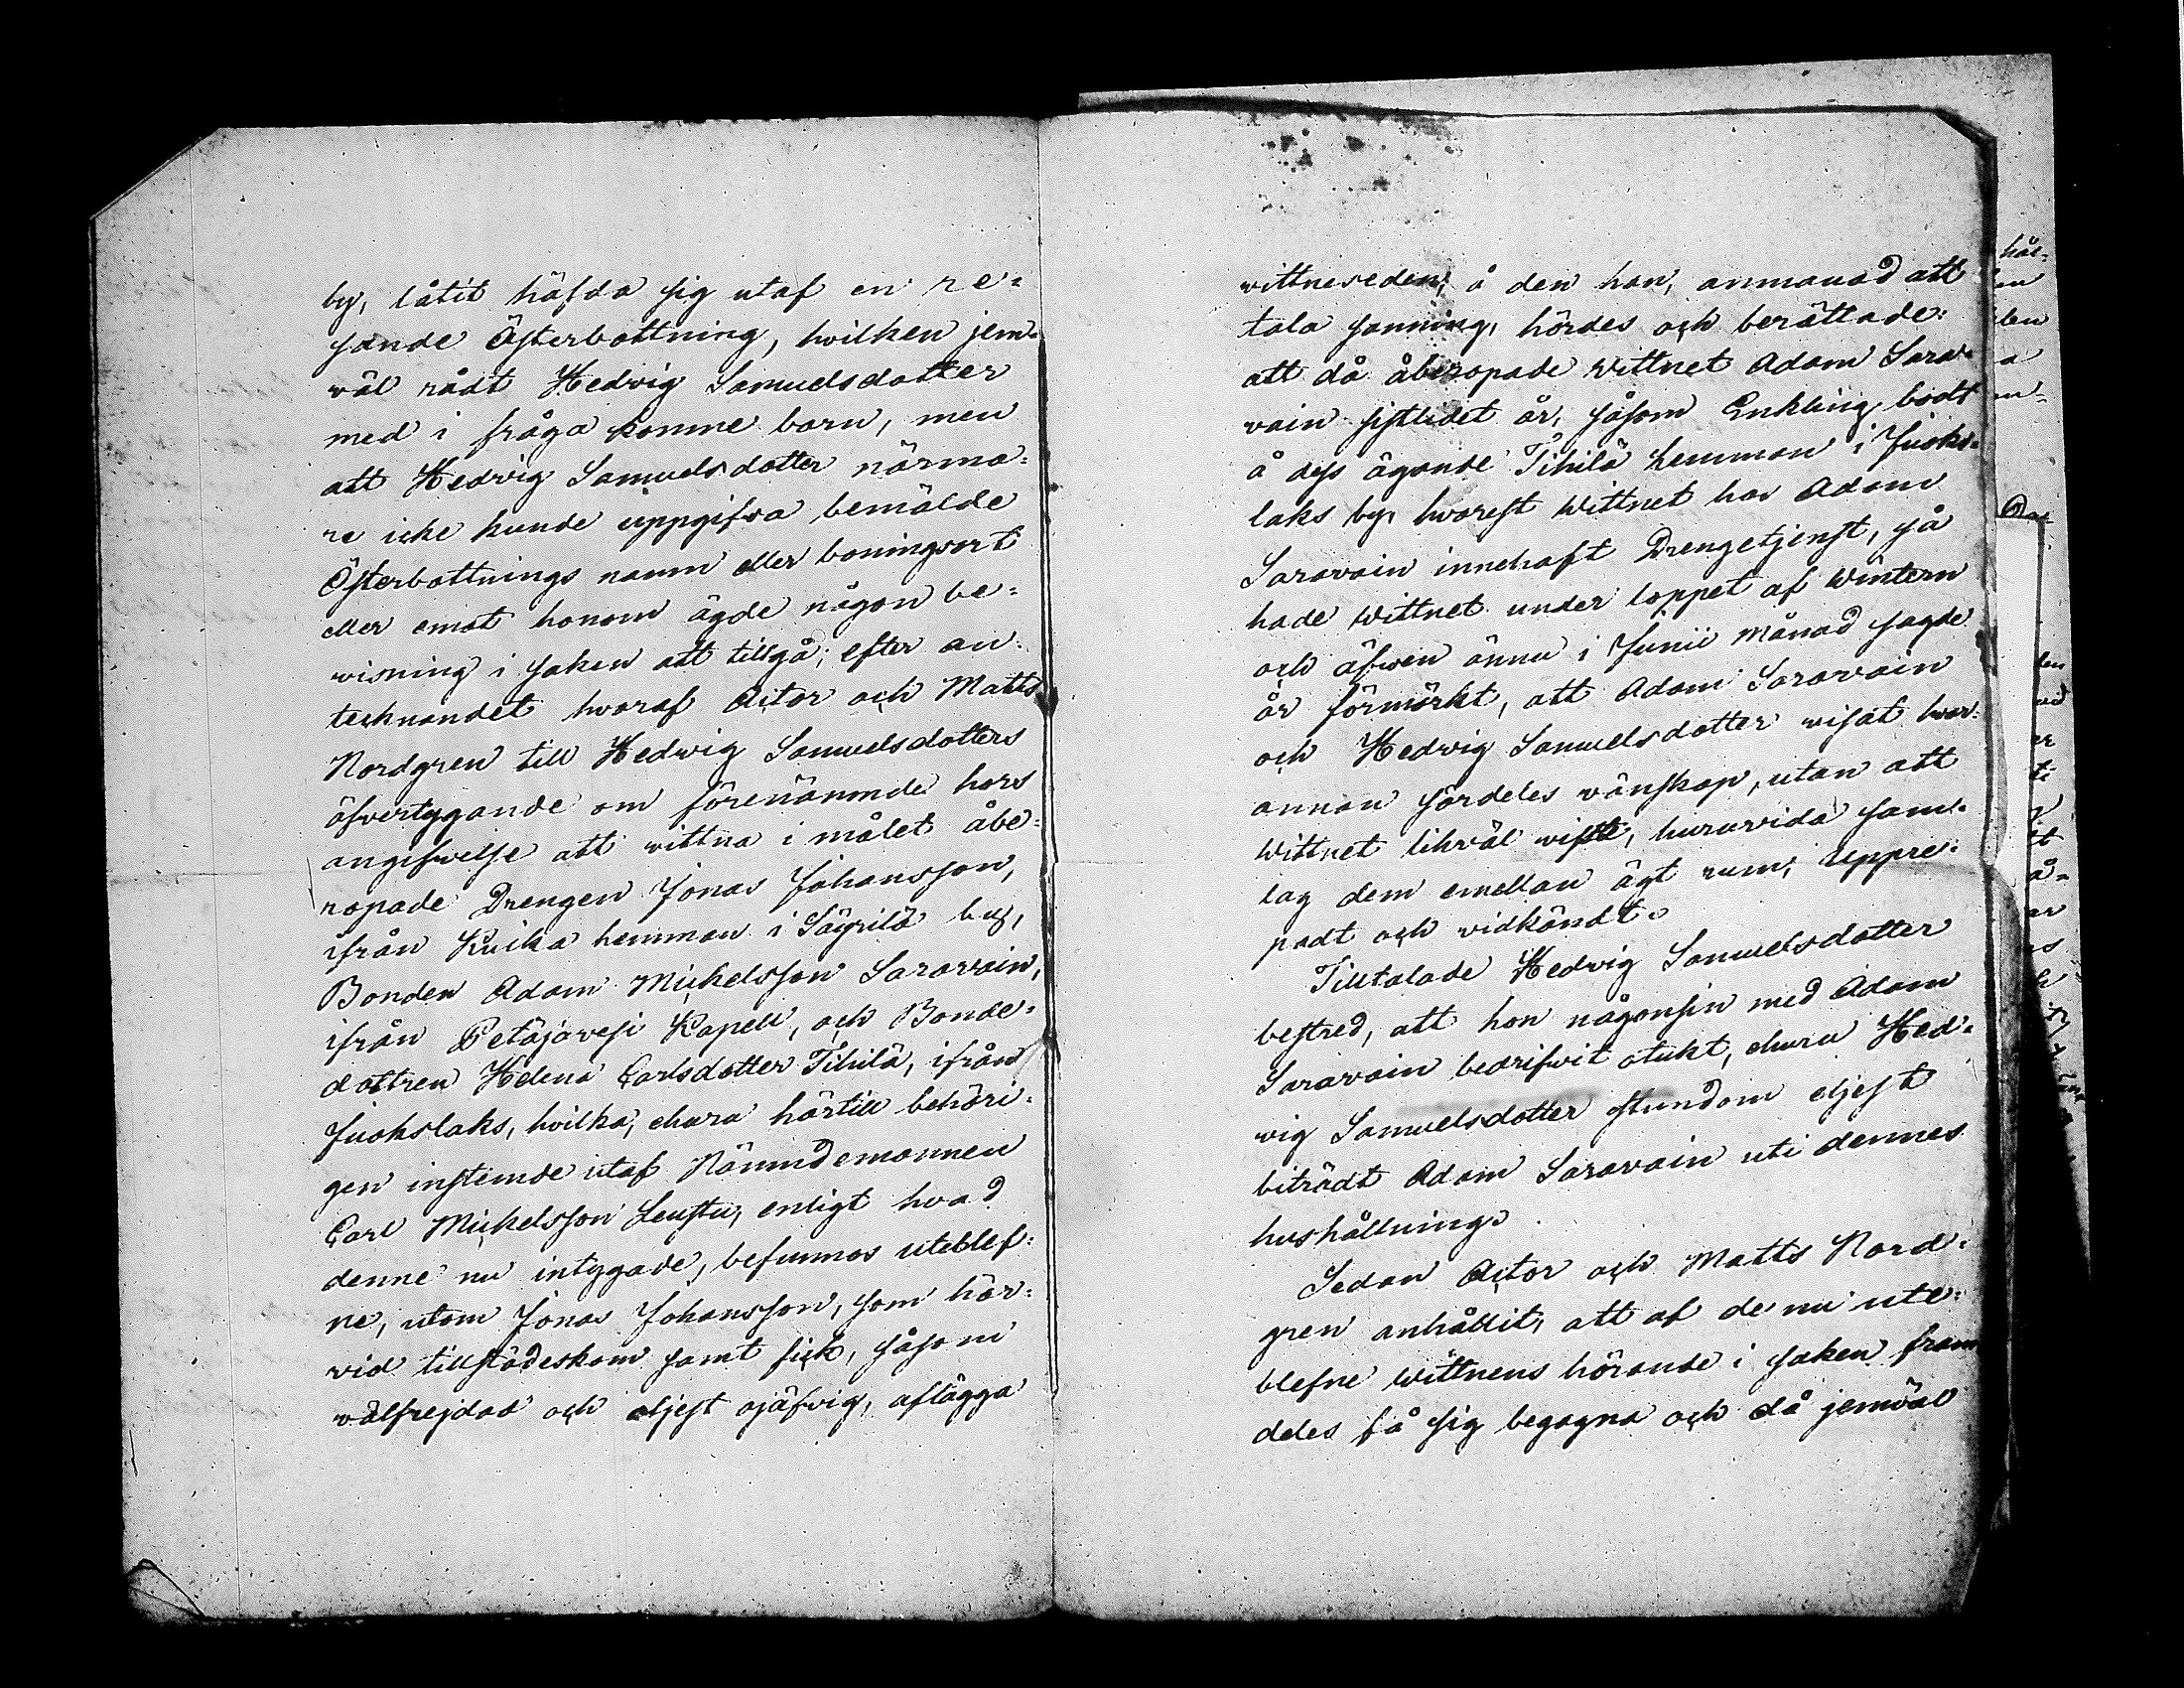 by, låtit häfda sig utaf en re=
sande Österbottning, hvilken jem=
väl rådt Hedvig Samuelsdotter
med i fråga komne barn, men
att Hedvig Samuelsdotter närma=
re icke kunde uppgifva bemälde
Österbottnings namn eller boningsort
eller emot honom ägde någon be=
visning i saken att tillgå; efter an=
tecknandet hvaraf Actor och Matts
Nordgren till Hedvig Samuelsdotters
öfvertygande om förenämnde hors
angifvelse att vittna i målet åbe=
ropade Drengen Jonas Johansson,
ifrån Kuika hemman i Sägrilä by,
Bonden Adam Mickelsson Saravain,
ifrån Petäjävesi Kapell, och Bonde=
dottren Helena Carlsdotter Tihilä, ifrån
Juokslaks, hvilka, ehuru härtill behöri=
gen instemde utaf Nämndemannen
Carl Mickelsson Leustu, enligt hvad
denne nu intygade, befunnos uteblef=
ne, utom Jonas Johansson, som här=
vid tillstädeskom samt fick, såsom
välfrejdad och eljest ojäfvig, aflägga
vittneseden, å den han, anmanad att
tala sanning, hördes och berättade:
att då åberopade vittnet Adam Sara=
vain sistledet år, såsom Enkling, bodt
å dess ägande Tihilä hemman i Juoks=
laks by, hvarest Wittnet hos Adam
Saravain innehaft Drengetjenst, så
hade Wittnet under loppet af Wintern
och äfven ännu i Junii Månad sagde
år förmärkt, att Adam Saravain
och Hedvig Samuelsdotter visat hvar=
annan särdeles vänskap, utan att
Wittnet likväl visste, huruvida sam=
lag dem emellan ägt rum; Uppre=
padt och vidkändt.
Tilltalade Hedvig Samuelsdotter
bestred, att hon någonsin med Adam
Saravain bedrifvit otukt, ehuru Hed=
vig Samuelsdotter stundom eljest
biträdt Adam Saravain uti dennes
hushållning.
Sedan Actor och Matts Nord=
gren anhållit, att af de nu ute=
blefne Wittnens hörande i saken fram
deles få sig begagna och då jemväl